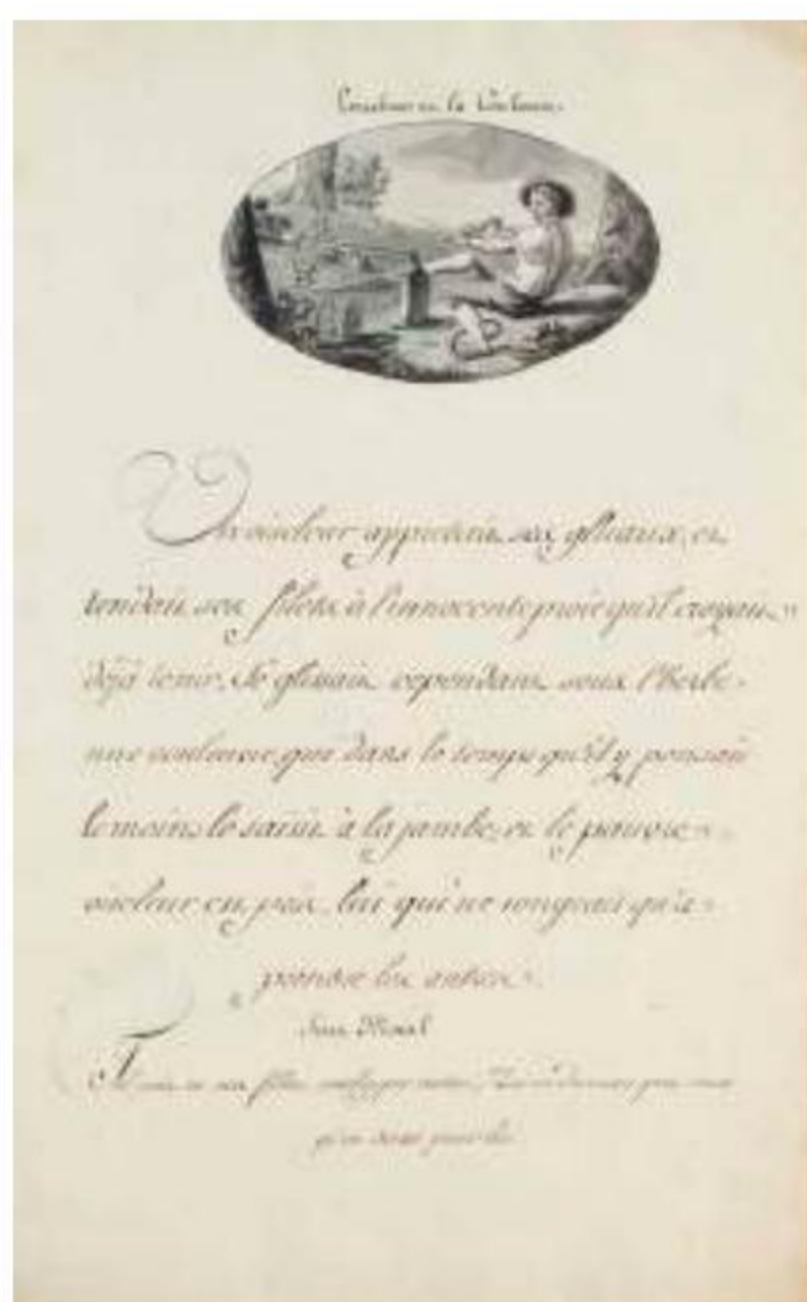 L'oiseleur et la Couleuvre.
Un oiseleur apprêtait ses gluaux, et
tendait ses filets à l'innocente proie qu'il croyait
déjà tenir. Se glissait cependant sous l'herbe
une couleuvre, qui dans le temps qu'il y pensait
le moins, le saisit à la jambe; et le pauvre
oiseleur est pris, lui qui ne songeait qu'à
prendre les autres.
Sens Moral